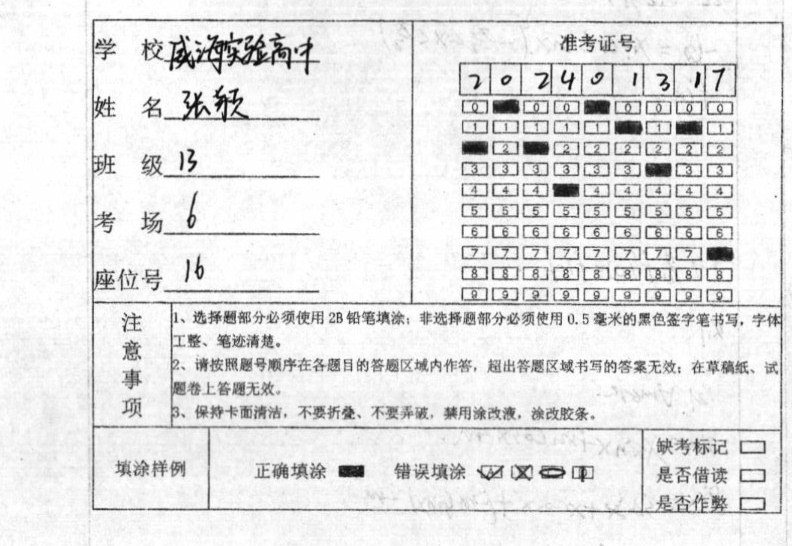 学 校 威海实验高中
姓 名 张颖
班 级 13
考 场 6
座位号 16
准考证号
2 0 2 4 0 1 3 1 7
0 0 0 0 0 0 0
1 1 1 1 1 1 1
2 2 2 2 2 2 2
3 3 3 3 3 3 3 3
4 4 4 4 4 4 4 4
5 5 5 5 5 5 5 5 5
6 6 6 6 6 6 6 6 6
7 7 7 7 7 7 7 7
8 8 8 8 8 8 8 8 8
9 9 9 9 9 9 9 9 9
注意事项
1、选择题部分必须使用 2B 铅笔填涂；非选择题部分必须使用 0.5 毫米的黑色签字笔书写，字体
工整、笔迹清楚。
2、请按照题号顺序在各题目的答题区域内作答，超出答题区域书写的答案无效；在草稿纸、试
题卷上答题无效。
3、保持卡面清洁，不要折叠、不要弄破，禁用涂改液，涂改胶条。
填涂样例
正确填涂 错误填涂
缺考标记
是否借读
是否作弊